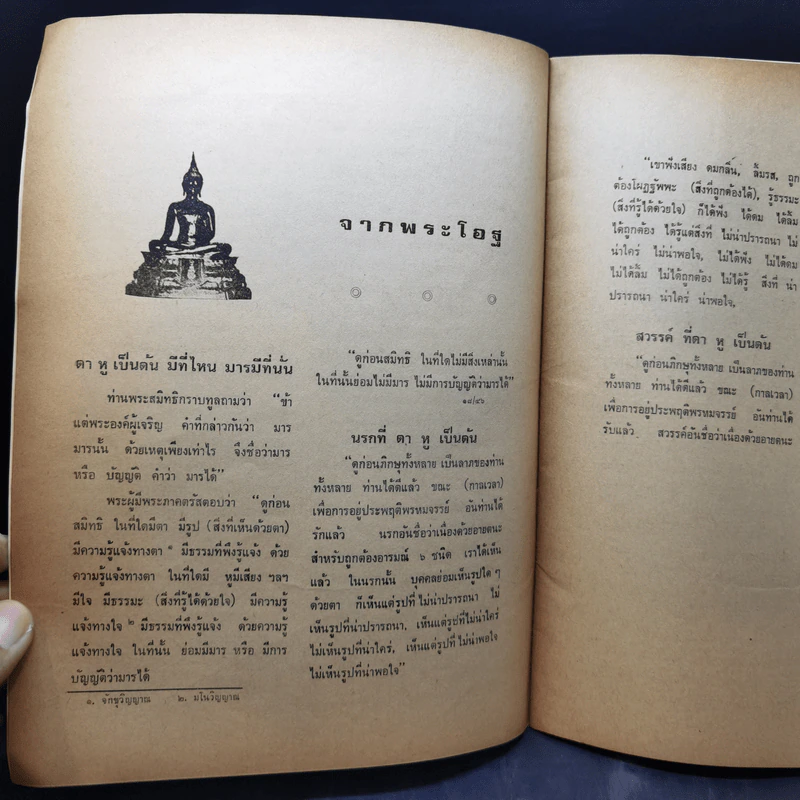 จากพระโอฐ
ตา หู เป็นต้น มีที่ไหน มารมีที่นั่น
ท่านพระสมิทธิกราบทูลถามว่า “ข้า
แต่พระองค์ผู้เจริญ คำที่กล่าวกันว่า มาร
มารนั้น ด้วยเหตุเพียงเท่าไร จึงชื่อว่ามาร
หรือ บัญญัติ คำว่า มารได้”
พระผู้มีพระภาคตรัสตอบว่า “ดูก่อน
สมิทธิ ในที่ใดมีตา มีรูป (สิ่งที่เห็นด้วยตา)
มีความรู้แจ้งทางตา ๑ มีธรรมที่พึงรู้แจ้ง ด้วย
ความรู้แจ้งทางตา ในที่ใดมี หูมีเสียง ฯลฯ
มีใจ มีธรรมะ (สิ่งที่รู้ได้ด้วยใจ) มีความรู้
แจ้งทางใจ ๒ มีธรรมที่พึงรู้แจ้ง ด้วยความรู้
แจ้งทางใจ ในที่นั้น ย่อมมีมาร หรือ มีการ
บัญญัติว่ามารได้
๑. จักขุวิญญาณ ๒. มโนวิญญาณ
“ดูก่อนสมิทธิ ในที่ใดไม่มีสิ่งเหล่านั้น
ในที่นั้นย่อมไม่มีมาร ไม่มีการบัญญัติว่ามารได้”
๑๘/๔๖
นรกที่ ตา หู เป็นต้น
“ดูก่อนภิกษุทั้งหลาย เป็นลาภของท่าน
ทั้งหลาย ท่านได้ดีแล้ว ขณะ (กาลเวลา)
เพื่อการอยู่ประพฤติพรหมจรรย์ อันท่านได้
รักแล้ว นรกอันชื่อว่าเนื่องด้วยอายตนะ
สำหรับถูกต้องอารมณ์ ๖ ชนิด เราได้เห็น
แล้ว ในนรกนั้น บุคคลย่อมเห็นรูปใด ๆ
ด้วยตา ก็เห็นแต่รูปที่ ไม่น่าปรารถนา ไม่
เห็นรูปที่น่าปรารถนา, เห็นแต่รูปที่ไม่น่าใคร่
ไม่เห็นรูปที่น่าใคร่, เห็นแต่รูปที่ ไม่น่าพอใจ
ไม่เห็นรูปที่น่าพอใจ”
“เขาฟังเสียง ดมกลิ่น, ลิ้มรส, ถูก
ต้องโผฏฐัพพะ (สิ่งที่ถูกต้องได้), รู้ธรรมะ
(สิ่งที่รู้ได้ด้วยใจ) ก็ได้ฟัง ได้ดม ได้ลิ้ม
ได้ถูกต้อง ได้รู้แต่สิ่งที่ ไม่น่าปรารถนา ไม่
น่าใคร่ ไม่น่าพอใจ, ไม่ได้ฟัง ไม่ได้ดม
ไม่ได้ลิ้ม ไม่ได้ถูกต้อง ไม่ได้รู้ สิ่งที่ น่า
ปรารถนา น่าใคร่ น่าพอใจ,
สวรรค์ ที่ตา หู เป็นต้น
“ดูก่อนภิกษุทั้งหลาย เป็นลาภของท่าน
ทั้งหลาย ท่านได้ดีแล้ว ขณะ (กาลเวลา)
เพื่อการอยู่ประพฤติพรหมจรรย์ อันท่านได้
รับแล้ว สวรรค์อันชื่อว่าเนื่องด้วยอายตนะ